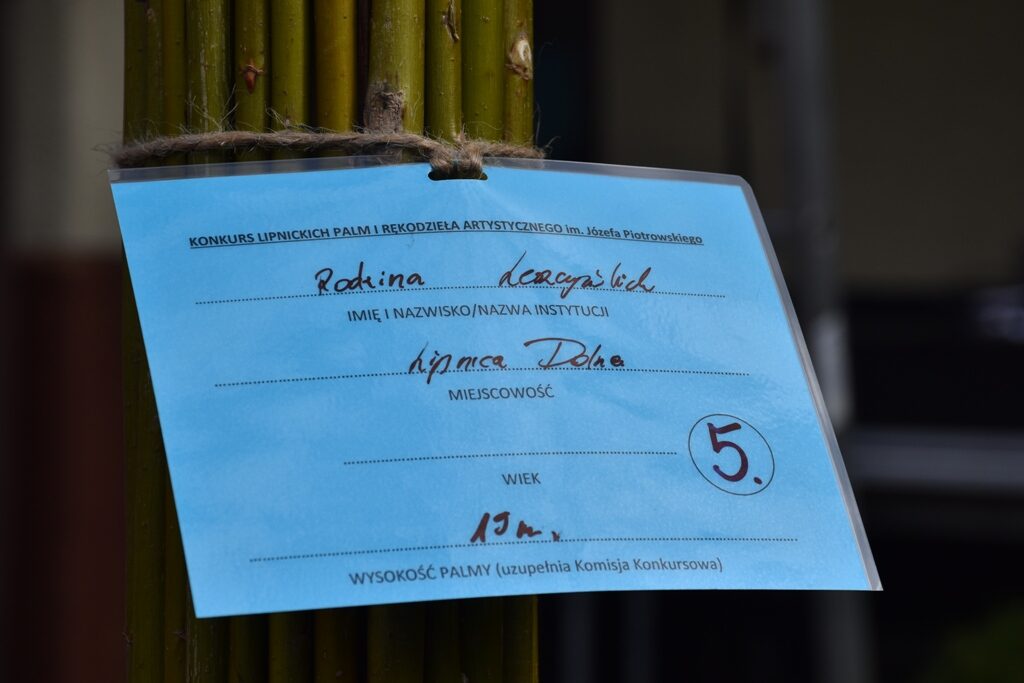 KONKURS LIPNICKICH PALM I RĘKODZIEŁA ARTYSTYCZNEGO im. Józefa Piotrowskiego
Rodzina Leszczyńskich
IMIĘ I NAZWISKO/NAZWA INSTYTUCJI
Lipnica Dolna
MIEJSCOWOŚĆ
5.
WIEK
19 m.
WYSOKOŚĆ PALMY (uzupełnia Komisja Konkursowa)